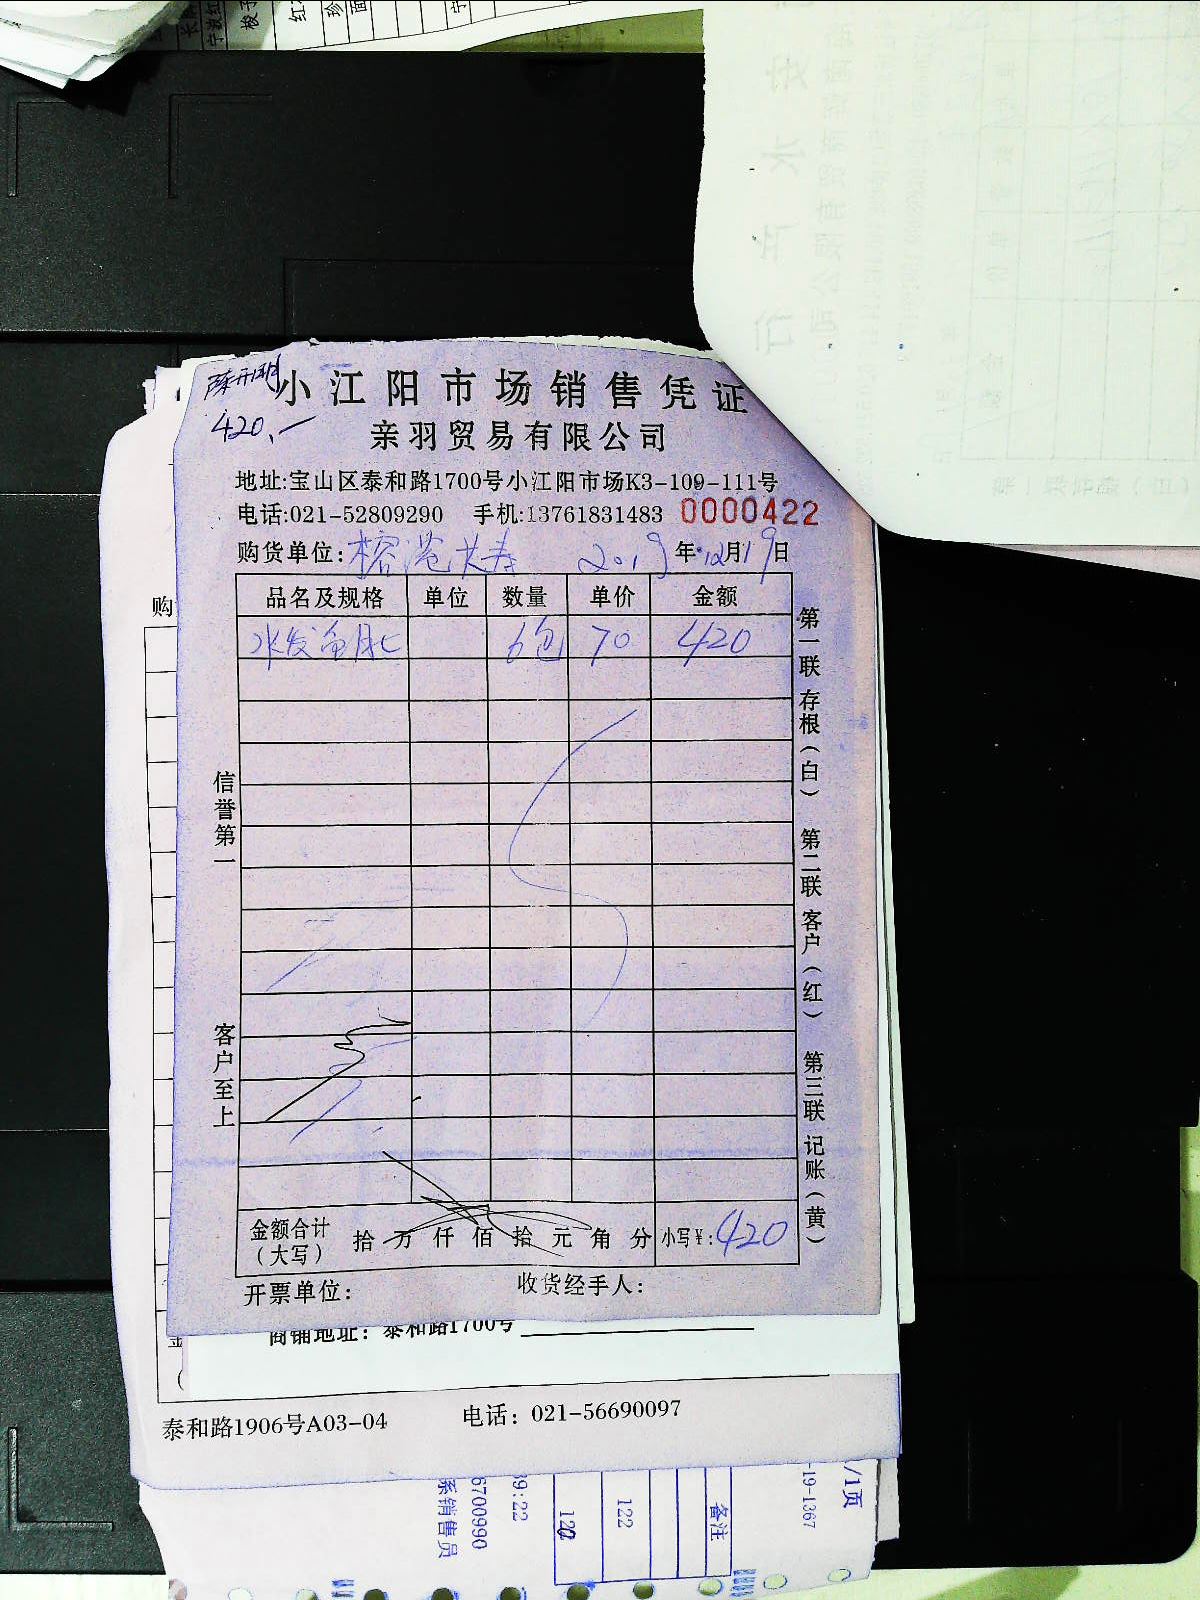 小江阳市场销售凭证
420.一
亲羽贸易有限公司
地址:宝山区泰和路1700号小江阳市场K3-109-111号
电话:021-52809290 手机:13761831483 0000422
购货单位:榕港长寿 2019年12月19日
品名及规格 单位 数量 单价 金额
水发鱼肚 6包 70 420
信誉第一
客户至上
第一联 存根(白) 第二联 客户(红) 第三联 记账(黄)
金额合计(大写) 拾 万 仟 佰 拾 元 角 分 小写¥:420
开票单位: 收货经手人:
商铺地址: 泰和路1700号
泰和路1906号A03-04 电话: 021-56690097
购
39:22
6700990
系销售员
122
122
备注
-19-1367
/1页